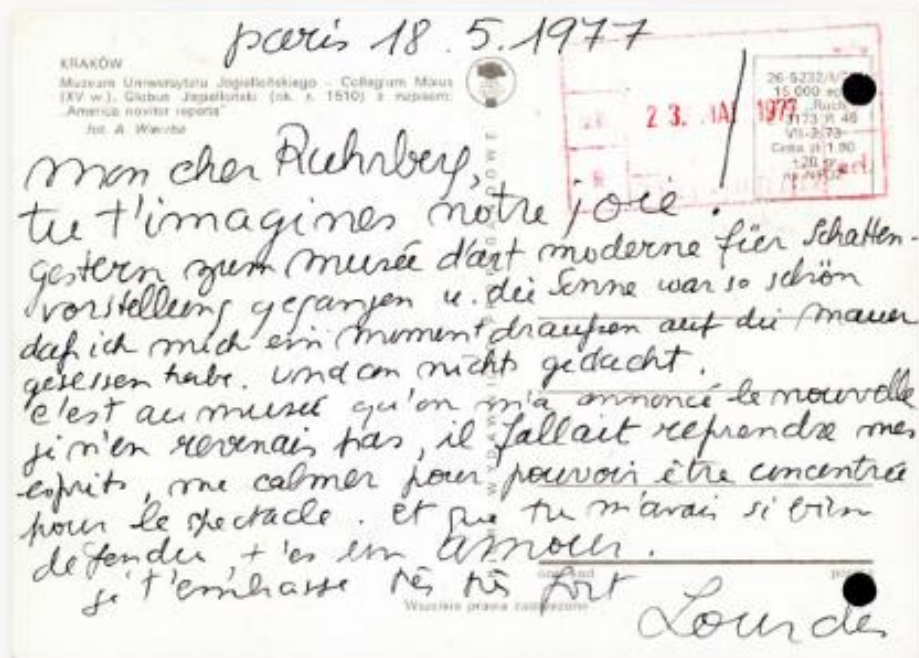 paris 18.5.1977
KRAKÓW
Muzeum Uniwersytetu Jagiellońskiego – Collegium Maius
(XV w.). Globus Jagielloński (ok. r. 1510) z napisem:
„America noviter reperta”
fot. A. Wierzba
26-5232/I/
15 000
„Ruch”
3173 R 46
VII-2/73
Cena zł 1.90
+20 gr
na NFOZ
23. 1977
mon cher Ruhrberg,
tu t'imagines notre joie.
gestern zum musée d'art moderne für Schatten-
vorstellung gegangen u. die Sonne war so schön
daß ich mich ein moment draußen auf die mauer
gesessen habe. und an nichts gedacht.
c'est au musée qu'on m'a annoncé le nouvelle
je n'en revenais pas, il fallait reprendre mes
esprits, me calmer pour pouvoir être concentrée
pour le spectacle. et que tu m'avais si bien
défendu, t'es un amour.
je t'embrasse très très fort
Wszelkie prawa zastrzeżone
Lourdes